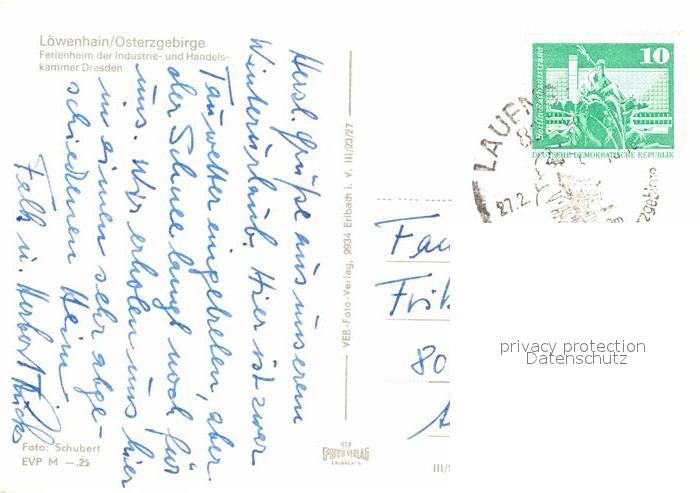 Löwenhain/Osterzgebirge
Ferienheim der Industrie- und Handels-
kammer Dresden
Herzl. Grüße aus unserem
Winterurlaub. Hier ist zwar
Tauwetter eingetreten, aber
der Schnee langt noch für
uns. Wir erholen uns hier
in einem sehr abge-
schiedenen Heim
u. Herbert
Foto: Schubert
EVP M —.25
VEB-Foto-Verlag, 9934 Erlbach i. V. III/23/27
VEB
FOTO-VERLAG
ERLBACH
III/1
10
Berlin-Rathausstraße
DEUTSCHE DEMOKRATISCHE REPUBLIK
LAUEN
27.2.
zgebirge
Fam
80
privacy protection
Datenschutz